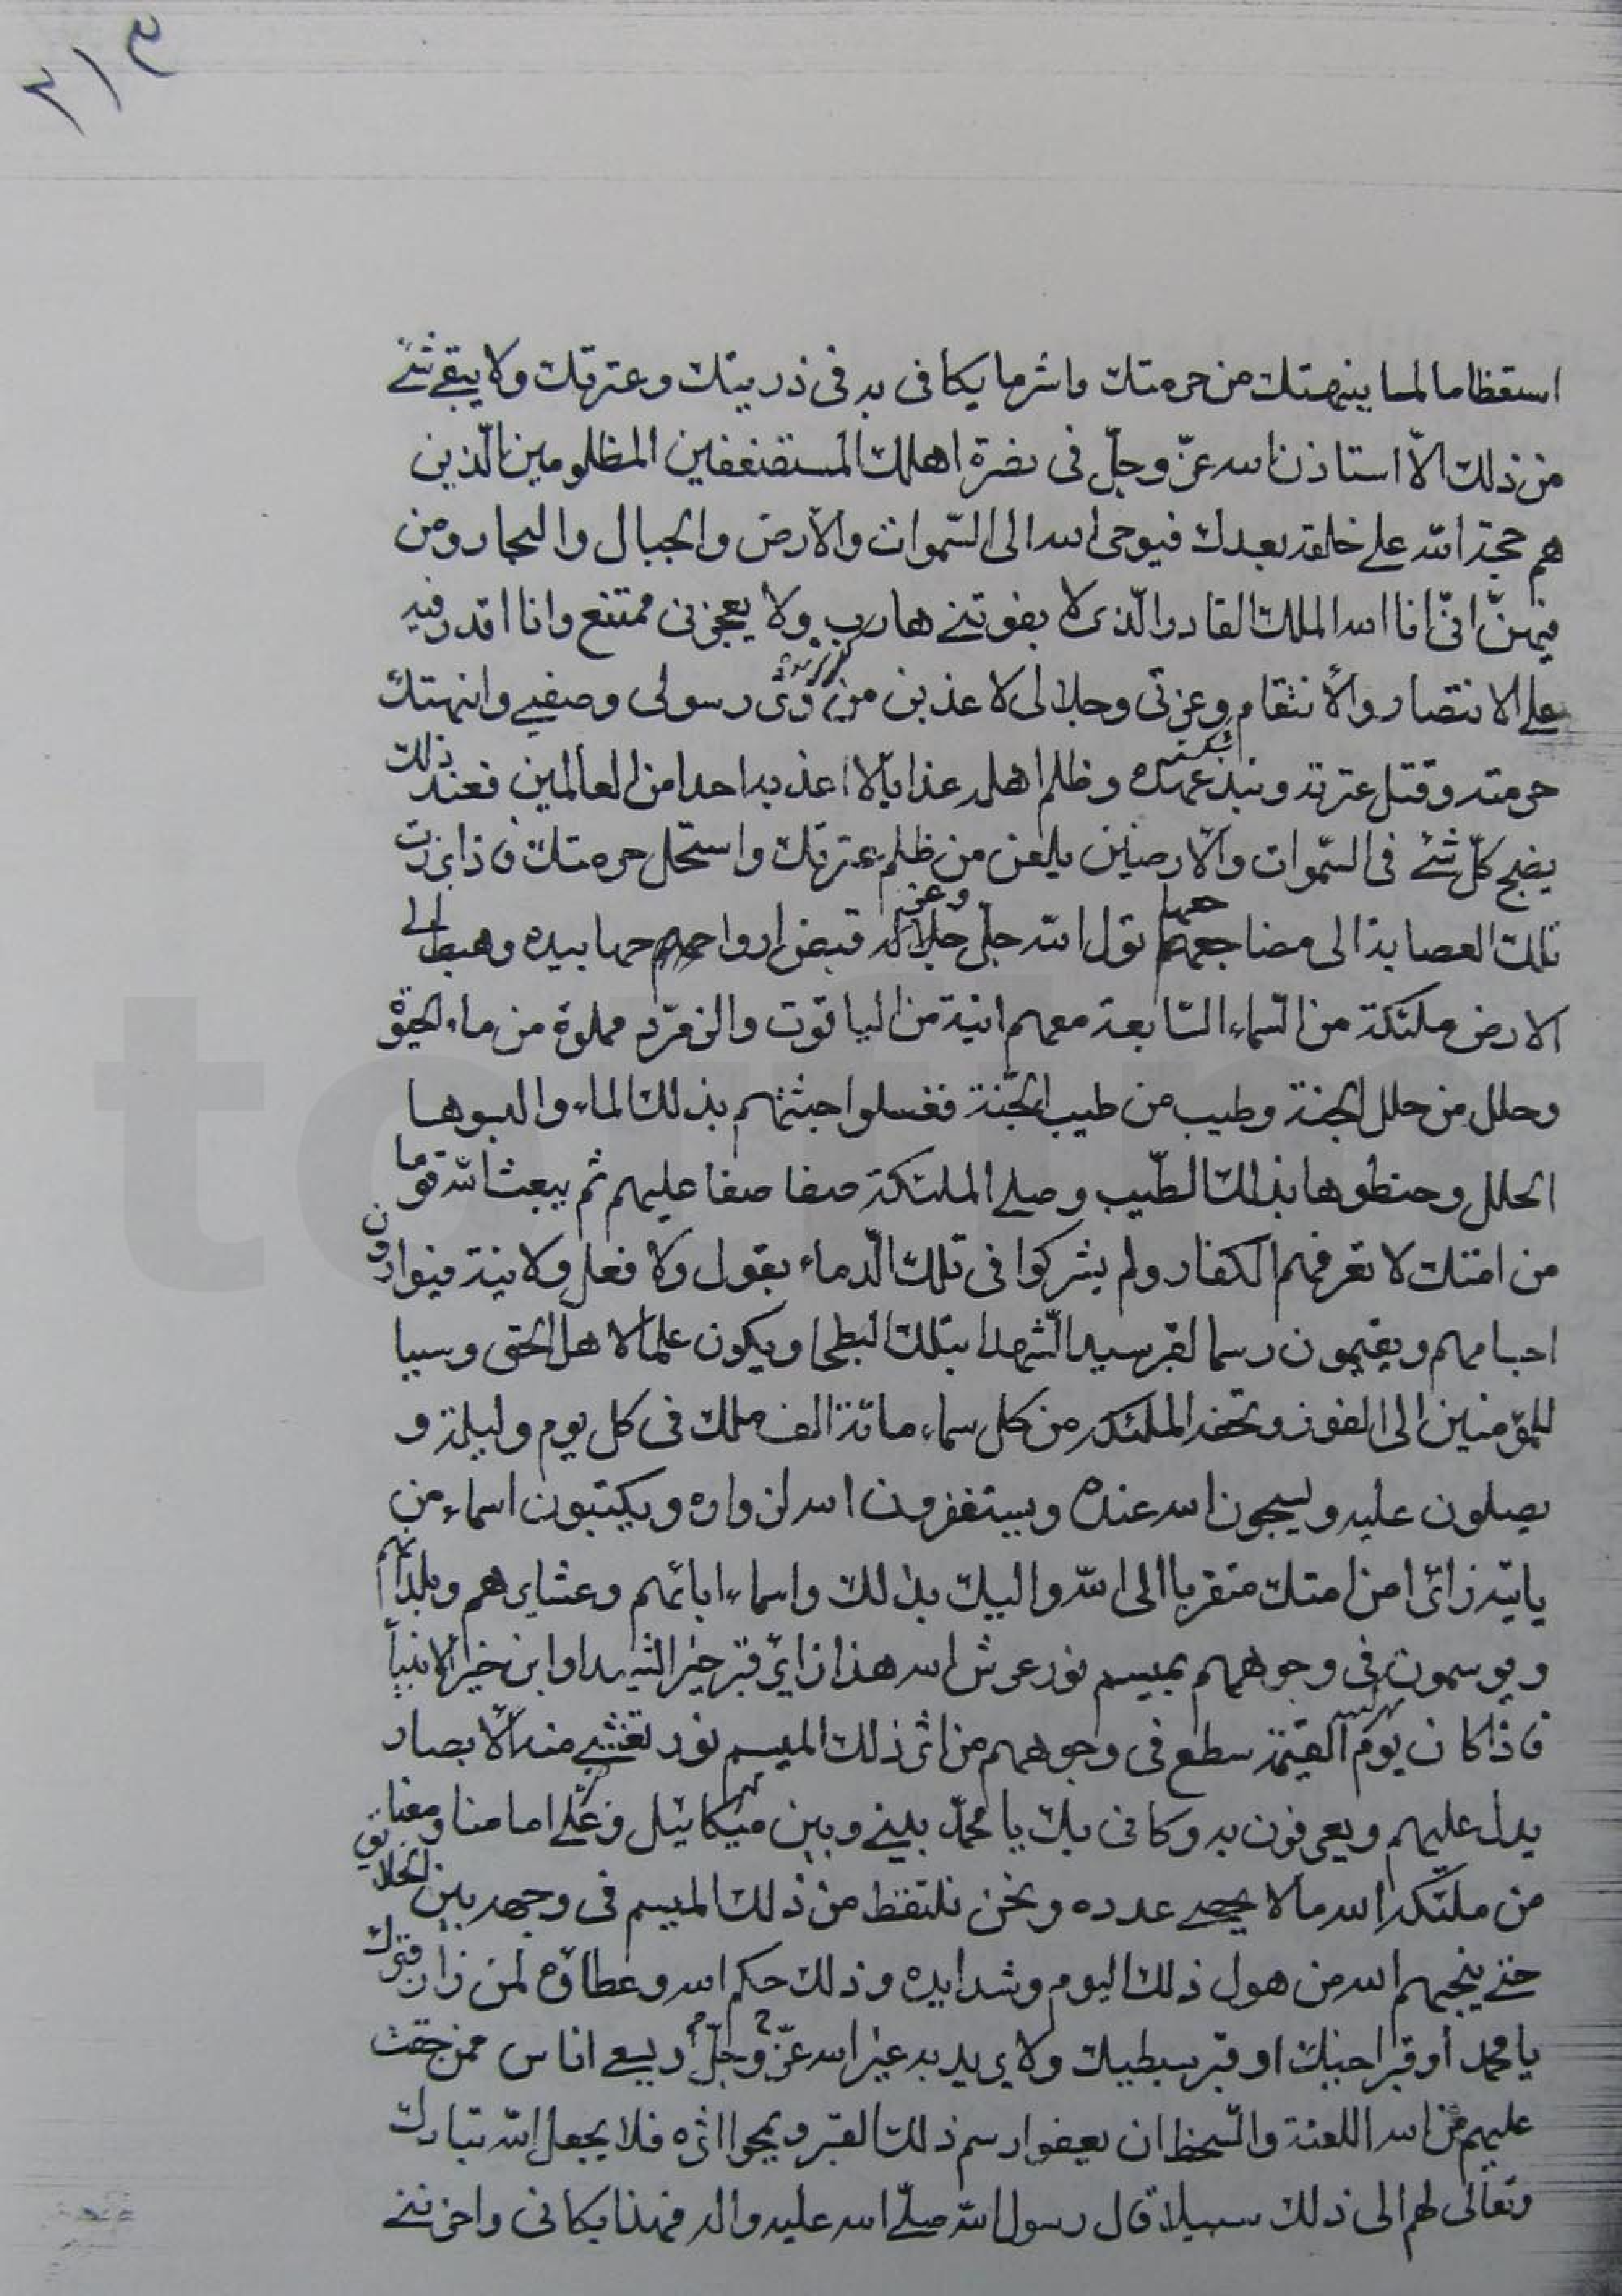 م ٣١
استعظاما لما ينتهك من حرمتك وشر ما يكافى به فى ذريتك وعترتك ولا يبقى شئ
من ذلك الّا استاذن الله عزّ وجلّ فى نصرة اهلك المستضعفين المظلومين الّذين
هم حجة الله على خلقه بعدك فيوحى الله الى السّموات والأرض والجبال والبحار ومن
فيهنّ انّى انا الله الملك القادر الّذى لا يفوتنى هارب ولا يعجزنى ممتنع وانا اقدر فيه
على الانتصار والأنتقام وعزتى وجلالى لاعذبن من وتر رسولى وصفيى وانتهك
حرمته وقتل عترته ونبذ عهده وظلم اهله عذابا لا اعذبه احدا من العالمين فعند ذلك
يضج كلّ شئ فى السّموات والأرضين يلعن من ظلم عترتك واستحل حرمتك فاذا برزت
تلك العصابة الى مضاجعها تولى الله جلّ وعز قبض ارواحها بيده وهبط الى
الارض ملئكة من السّماء السّابعة معهم انية من الياقوت والزمرّد مملوة من ماء الحيوة
وحلل من حلل الجنة وطيب من طيب الجنّة فغسلوا جثثهم بذلك الماء والبسوها
الحلل وحنطوها بذلك الطّيب وصلى الملئكة صفا صفا عليهم ثم يبعث الله قوما
من امتك لا تعرفهم الكفار ولم يشركوا فى تلك الّدماء بقول ولا فعل ولا نية فيوارون
اجسامهم ويقيمون رسما لقبر سيد الشّهدا بتلك البطحا ويكون علما لاهل الحق وسببا
للمؤمنين الى الفوز وتحفه الملئكه من كل سماء مائة الف ملك فى كل يوم وليلة و
يصلون عليه ويسبحون الله عنده ويستغفرون الله لزواره ويكتبون اسماء من
ياتيه زائرا من امتك متقربا الى الله واليك بذلك واسماء ابائهم وعشايرهم وبلدانهم
ويوسمون فى وجوههم بميسم نور عرش الله هذا زاير قبر خير الشهداء وابن خير الانبياء
فاذا كان يوم القيمة سطع فى وجوههم من اثر ذلك الميسم نور تغشى منه الأبصار
يدل عليهم ويعرفون به وكانى بك يا محمّد بينى وبين ميكائيل وعلى امامنا ومعنا
من ملئكة الله ما لا يحصى عدده ونحن نلتقط من ذلك الميسم فى وجهه بين الخلايق
حتى ينجيهم الله من هول ذلك اليوم وشدايده وذلك حكم الله وعطاؤه لمن زار قبرك
يا محمد أو قبر اخيك او قبر سبطيك ولا يريد به غير الله عزّ وجلّ ويسعى اناس ممن حقت
عليهم من الله اللعنة والسّخط ان يعفوا رسم ذلك القبر ويمحوا اثره فلا يجعل الله تبارك
وتعالى لهم الى ذلك سبيلا قال رسول الله صلّى الله عليه واله فهذا بكانى واحزننى